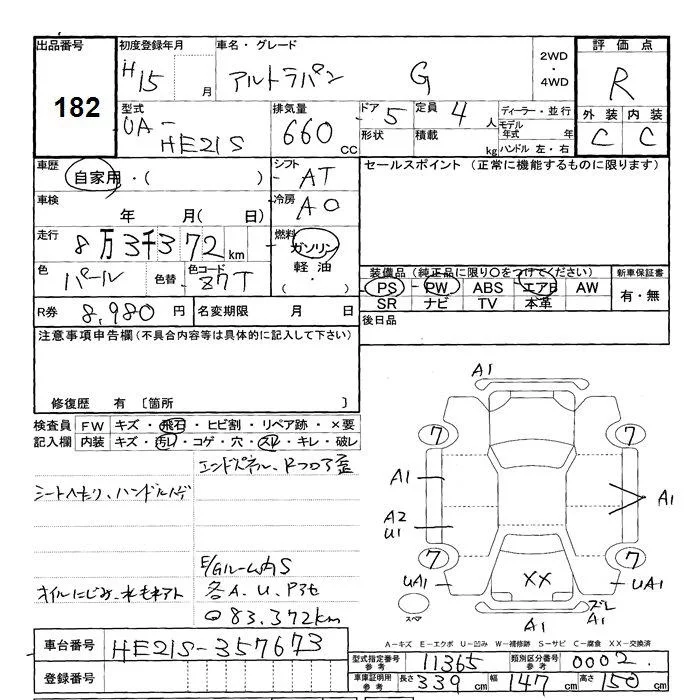 出品番号 182
初度登録年月 H15 月
車名・グレード アルトラパン G
2WD
・
4WD
評価点 R
外装 内装
C C
型式 UA-HE21S
排気量 660 CC
ドア 5 定員 4 人
形状 積載 kg
ディーラー・並行
モデル年式 年
ハンドル 左・右
車歴 自家用・( )
シフト AT
セールスポイント (正常に機能するものに限ります)
車検 年 月( 日)
冷房 AC
走行 8万3千372km
燃料 ガソリン
軽油
・
( )
色 パール 色替 色コード Z7T
装備品 (純正品に限り○をつけてください)
PS・PW・ABS エアB AW
SR ナビ TV 本革
新車保証書
有・無
R券 8,980 円 名変期限 月 日
後日品
注意事項申告欄(不具合内容等は具体的に記入して下さい)
修復歴 有 〔箇所 〕
検査員記入欄
FW キズ・飛石・ヒビ割・リペア跡・×要
内装 キズ・汚レ・コゲ・穴・スレ・キレ・破レ
エンドパネル、Rフロア歪
シートヘたり、ハンドル
E/Gルーム内S
オイルにじみ、
各A、U、P3セ
83,372km
A1
7 7
A1 A1
A2
U1
7 7
UA1 XX UA1
スペア
A1 ズレ
A1
A-キズ E-エクボ U-凹み W-補修跡 S-サビ C-腐食 XX-交換済
車台番号 HE21S-357673
型式指定番号 参考 11365 類別区分番号 参考 0002
登録番号
車庫証明用 参考 長さ 339 cm 幅 147 cm 高さ 150 cm